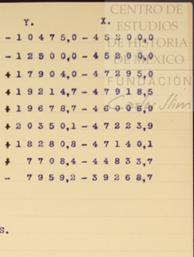 Y. X.
-10475,0-45200,0
-12500,0-45800,0
+17904,0-47295,0
+19214,7-47918,5
+19678,7-46008,0
+20350,1-47223,9
+18280,8-47140,1
+ 7708,4-44833,7
- 7959,2-39268,7
S.
CENTRO DE
ESTUDIOS
DE HISTORIA
DE MÉXICO
FUNDACIÓN
Carlos Slim